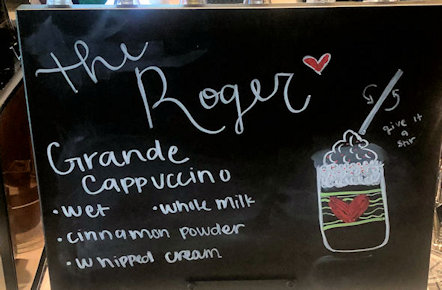 the
Roger
Grande
Cappuccino
• wet • whole milk
• cinnamon powder
• whipped cream
give it
a
stir